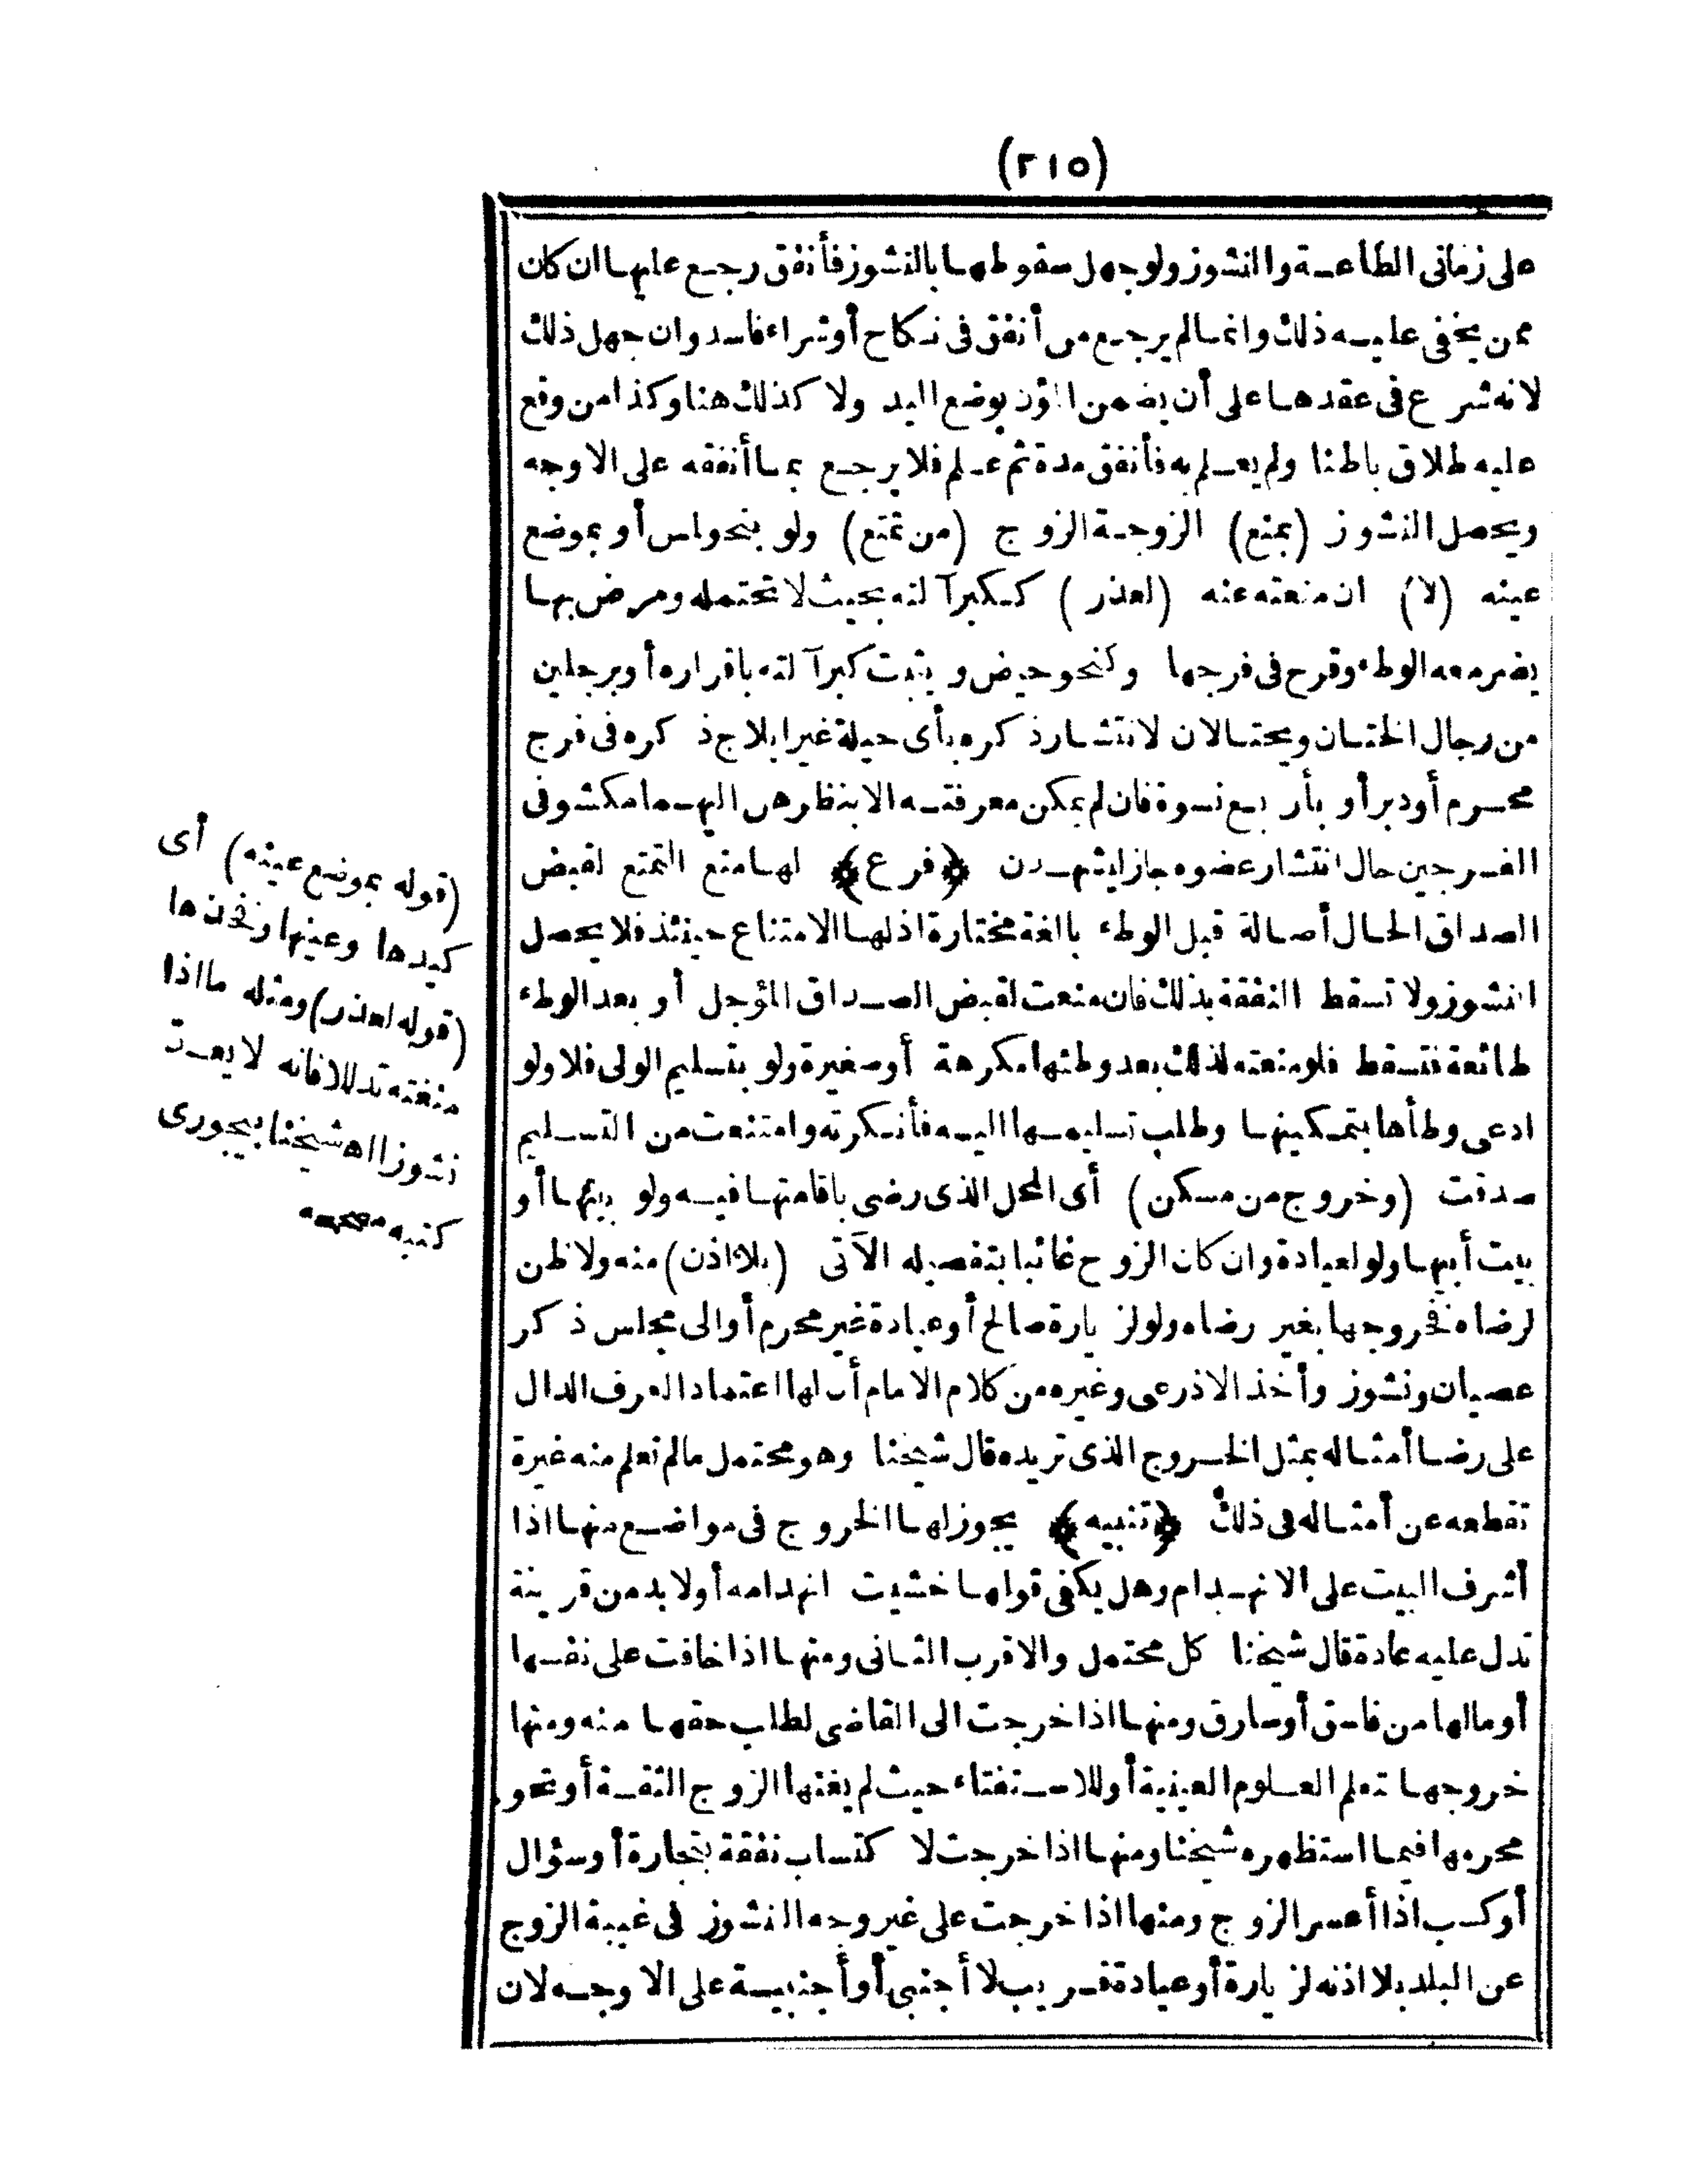 (٢١٥)
على زمانى الطاعة والنشوز ولو جهل سقوطها بالنشوز فأنفق رجع عليها ان كان
ممن يخفى عليه ذلك وانما لم يرجع من أنفق فى نكاح أو شراء فاسد وان جهل ذلك
لانه شرع فى عقدهما على أن يضمن المؤن بوضع اليد ولا كذلك هنا وكذا من وقع
عليه طلاق باطنا ولم يعلم به فأنفق مدة ثم علم فلا يرجع بما أنفقه على الاوجه
ويحصل النشوز (بمنع) الزوجة الزوج (من تمتع) ولو بنحو لمس أو بموضع
عينه (لا) ان منعته عنه (لعذر) ككبر آلته بحيث لا تحتمله ومرض بها
يضر معه الوطء وقرح فى فرجها وكنحو حيض ويثبت كبر آلته باقراره أو برجلين
من رجال الختان ويحتالان لانتشار ذكره بأى حيلة غير ايلاج ذكره فى فرج
محرم أو دبر أو بأربع نسوة فان لم يمكن معرفته الا بنظرهن اليهما مكشوفى
الفرجين حال انتشار عضوه جاز ليشهدن ﴿فرع﴾ لها منع التمتع لقبض
الصداق الحال أصالة قبل الوطء بالغة مختارة اذ لها الامتناع حينئذ فلا يحصل
النشوز ولا تسقط النفقة بذلك فان منعت لقبض الصداق المؤجل أو بعد الوطء
طائعة فتسقط فلو منعته لذلك بعد وطئها مكرهة أو صغيرة ولو بتسليم الولى فلا ولو
ادعى وطأها بتمكينها وطلب تسليمها اليه فأنكرته وامتنعت من التسليم
صدقت (وخروج من مسكن) أى المحل الذى رضى باقامتها فيه ولو بيتها أو
بيت أبيها ولو لعيادة وان كان الزوج غائبا بتفصيله الآتى (بلا اذن) منه ولا ظن
لرضاه فخروجها بغير رضاه ولو لزيارة صالح أو عيادة غير محرم أو الى مجلس ذكر
عصيان ونشوز وأخذ الاذرعى وغيره من كلام الامام أن لها اعتماد العرف الدال
على رضا أمثاله بمثل الخروج الذى تريده قال شيخنا وهو محتمل ما لم تعلم منه غيرة
تقطعه عن أمثاله فى ذلك ﴿تنبيه﴾ يجوز لها الخروج فى مواضع منها اذا
أشرف البيت على الانهدام وهل يكفى قولها خشيت انهدامه أو لا بد من قرينة
تدل عليه عادة قال شيخنا كل محتمل والاقرب الثانى ومنها اذا خافت على نفسها
أو مالها من فاسق أو سارق ومنها اذا خرجت الى القاضى لطلب حقها منه ومنها
خروجها تعلم العلوم العينية أو للاستفتاء حيث لم يغنها الزوج الثقة أو نحو
محرمها فيما استظهره شيخنا ومنها اذا خرجت لاكتساب نفقة بتجارة أو سؤال
أو كسب اذا أعسر الزوج ومنها اذا خرجت على غير وجه النشوز فى غيبة الزوج
عن البلد بلا اذنه لزيارة أو عيادة قريب لا أجنبى أو أجنبية على الاوجه لان
(قوله بموضع عينه) أى
كيدها وعينها وفخذها
(قوله لعذر) ومثله ما اذا
منعته تدللا فانه لا يعد
نشوزا اه شيخنا بيجورى
كتبه مصححه